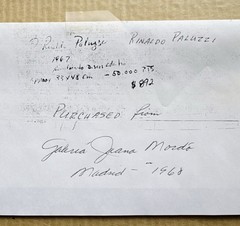 RINALDO PALUZZI
1967
33 x 48 cm - 50.000 PTS
$ 892
PURCHASED from
Galeria Juana Mordó
Madrid - 1968